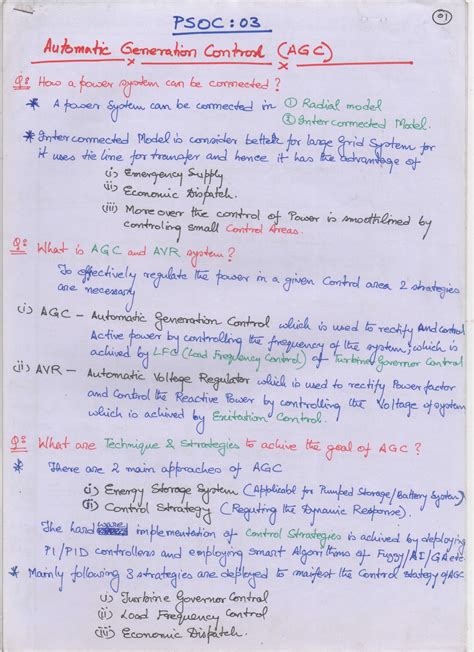 PSOC : 03
01
Automatic Generation Control (AGC)
Q: How a power system can be connected?
* A power System can be connected in ① Radial model
② Interconnected Model.
* Interconnected Model is consider better for large Grid System for
it uses tie line for transfer and hence it has the advantage of
(i) Emergency Supply
(ii) Economic Dispatch.
(iii) More over the control of Power is smoothlmed by
controling small Control Areas.
Q: What is AGC and AVR system?
To effectively regulate the power in a given Control area 2 strategies
are necessary
(i) AGC - Automatic Generation Control which is used to rectify and control
Active power by controlling the frequency of the system; which is
achived by LFC (Load Frequency Control) of Turbine Governor Control
(ii) AVR - Automatic Voltage Regulator which is used to rectify Power factor
and Control the Reactive Power by controlling the Voltage of system
which is achived by Exitation Control.
Q: What are Technique & Strategies to achive the goal of AGC?
* There are 2 main appraoches of AGC
(i) Energy Storage System (Applicabl for Pumped Storage/Battery System)
(ii) Control Strategy (Reguting the Dynamic Response).
The hardware implementation of Control Strategies is achived by deploying
PI/PID controllers and employing smart Algorithms of Fuzzy/AI/GA etc.
* Mainly following 3 strategies are deployed to manifest the Control stategy of AGC
(i) Turbine Governor Control
(ii) Load Frequency Control
(iii) Economic Dispatch.